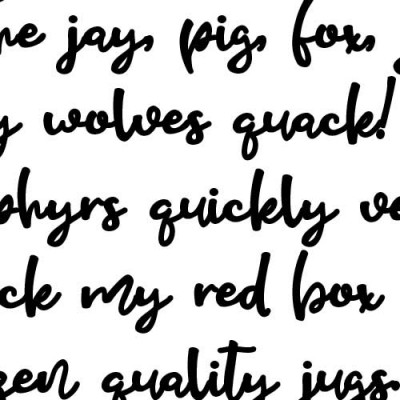 he jay, pig, fox,
y wolves quack!
phyrs quickly ve
ck my red box
zen quality jugs.